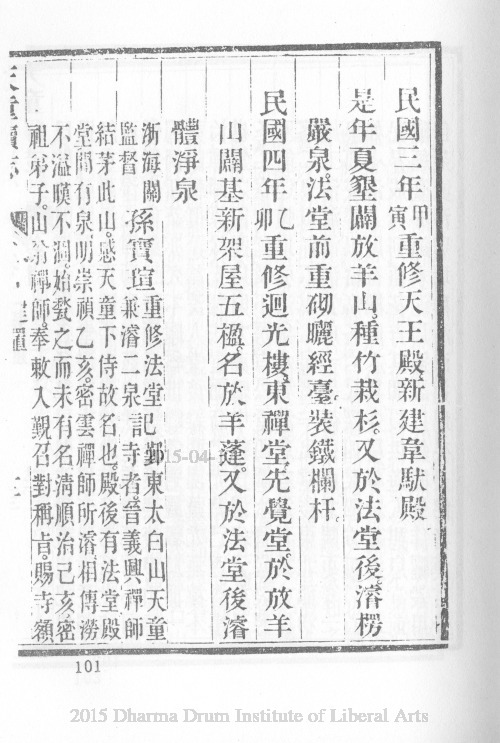 民國三年甲寅重修天王殿。新建韋馱殿
是年夏墾闢放羊山。種竹栽杉。又於法堂後。濬楞
嚴泉。法堂前重砌曬經臺。裝鐵欄杆。
民國四年乙卯重修迴光樓。東禪堂。先覺堂。於放羊
山闢基新架屋五楹。名於羊蓬。又於法堂後濬
體淨泉
浙海關監督孫寶瑄重修法堂兼濬二泉記 鄞東太白山天童寺者。晉義興禪師
結茅此山。感天童下侍故名也。殿後有法堂殿
堂間有泉。明崇禎乙亥。密雲禪師所濬。相傳澇
不溢暵不涸。始甃之而未有名。清順治己亥。密
祖弟子。山翁禪師。奉敕入覲。召對稱旨。賜寺額
天童續志
101
2015 Dharma Drum Institute of Liberal Arts